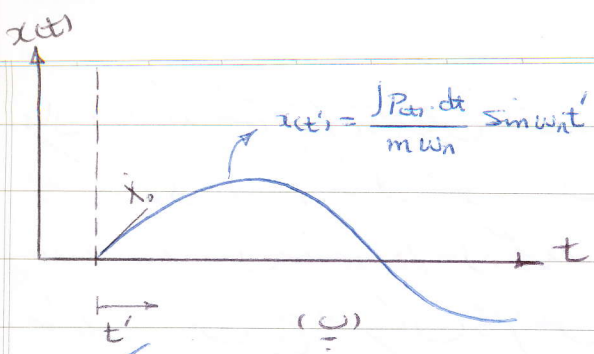 x(t)
x(t') = ∫P(t).dt / mωn sin ωn t'
ẋ₀
t
t'
(ب)